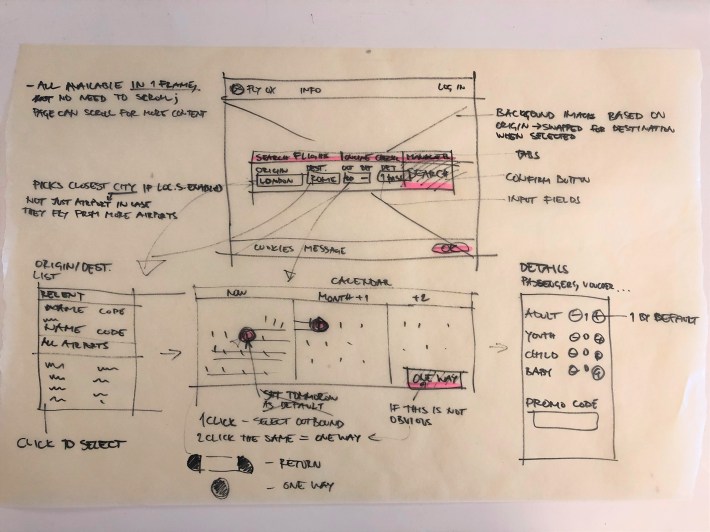 - ALL AVAILABLE IN 1 FRAME,
NO NEED TO SCROLL;
PAGE CAN SCROLL FOR MORE CONTENT
FLY UX INFO LOG IN
BACKGOUND IMAGE BASED ON
ORIGIN → SWAPPED FOR DESTINATION
WHEN SELECTED
SEARCH FLIGHT ONLINE CHECK MANAGE
TABS
ORIGIN DEST. OUT RET DET
LONDON ROME SEARCH
CONFIRM BUTTON
INPUT FIELDS
PICKS CLOSEST CITY IF LOC.S. ENABLED
NOT JUST AIRPORT IN CASE
THEY FLY FROM MORE AIRPORTS
COOKIES MESSAGE OK
ORIGIN/DEST.
LIST
RECENT
NAME CODE
NAME CODE
ALL AIRPORTS
CLICK TO SELECT
CALENDAR
NOW MONTH+1 +2
ONE WAY
SET TOMORROW
AS DEFAULT
IF THIS IS NOT
OBVIOUS
1 CLICK - SELECT OUTBOUND
2 CLICK THE SAME = ONE WAY <
- RETURN
- ONE WAY
DETAILS
PASSENGERS, VOUCHER...
ADULT - 1 + - 1 BY DEFAULT
YOUTH - 0 +
CHILD - 0 +
BABY - 0 +
PROMO CODE